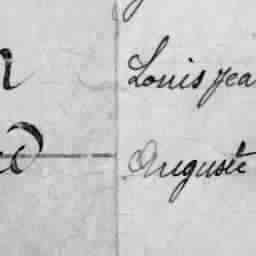 Louis Jea
Auguste